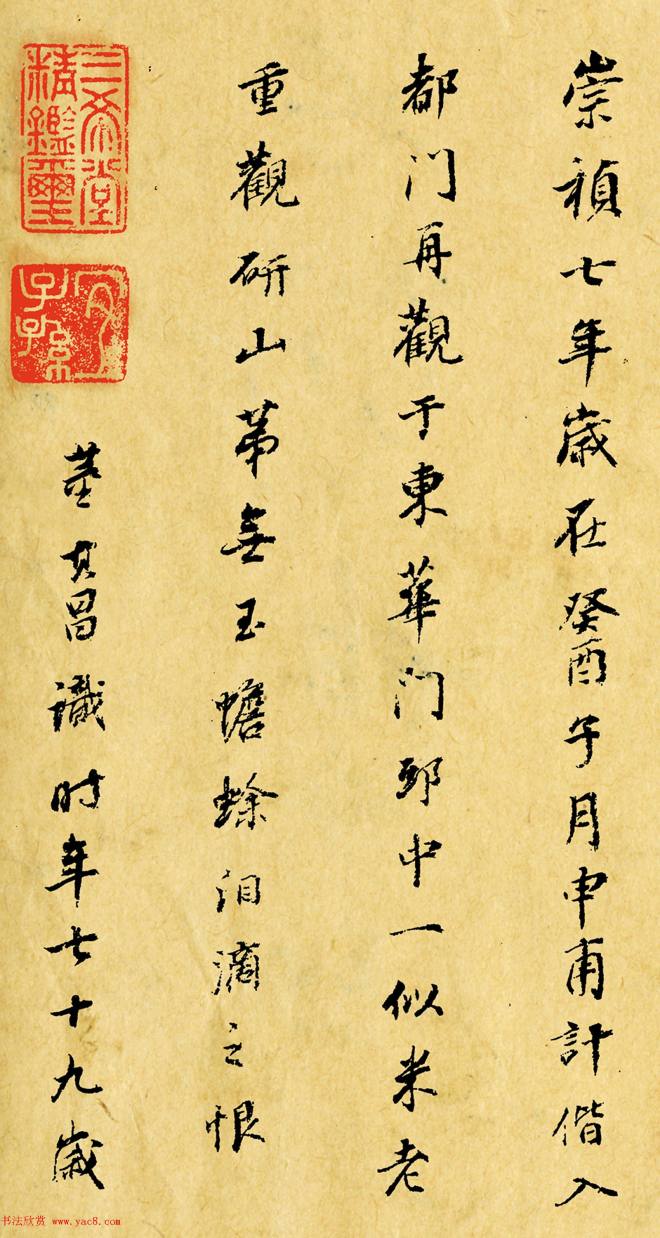 崇禎七年歲在癸酉子月申甫計偕入
都门再觀于東華门邸中一似米老
重觀研山苐無玉蟾蜍泪滴之恨
董其昌識时年七十九歲
三希堂
精鑑璽
宜
子孫
书法欣赏 www.yac8.com